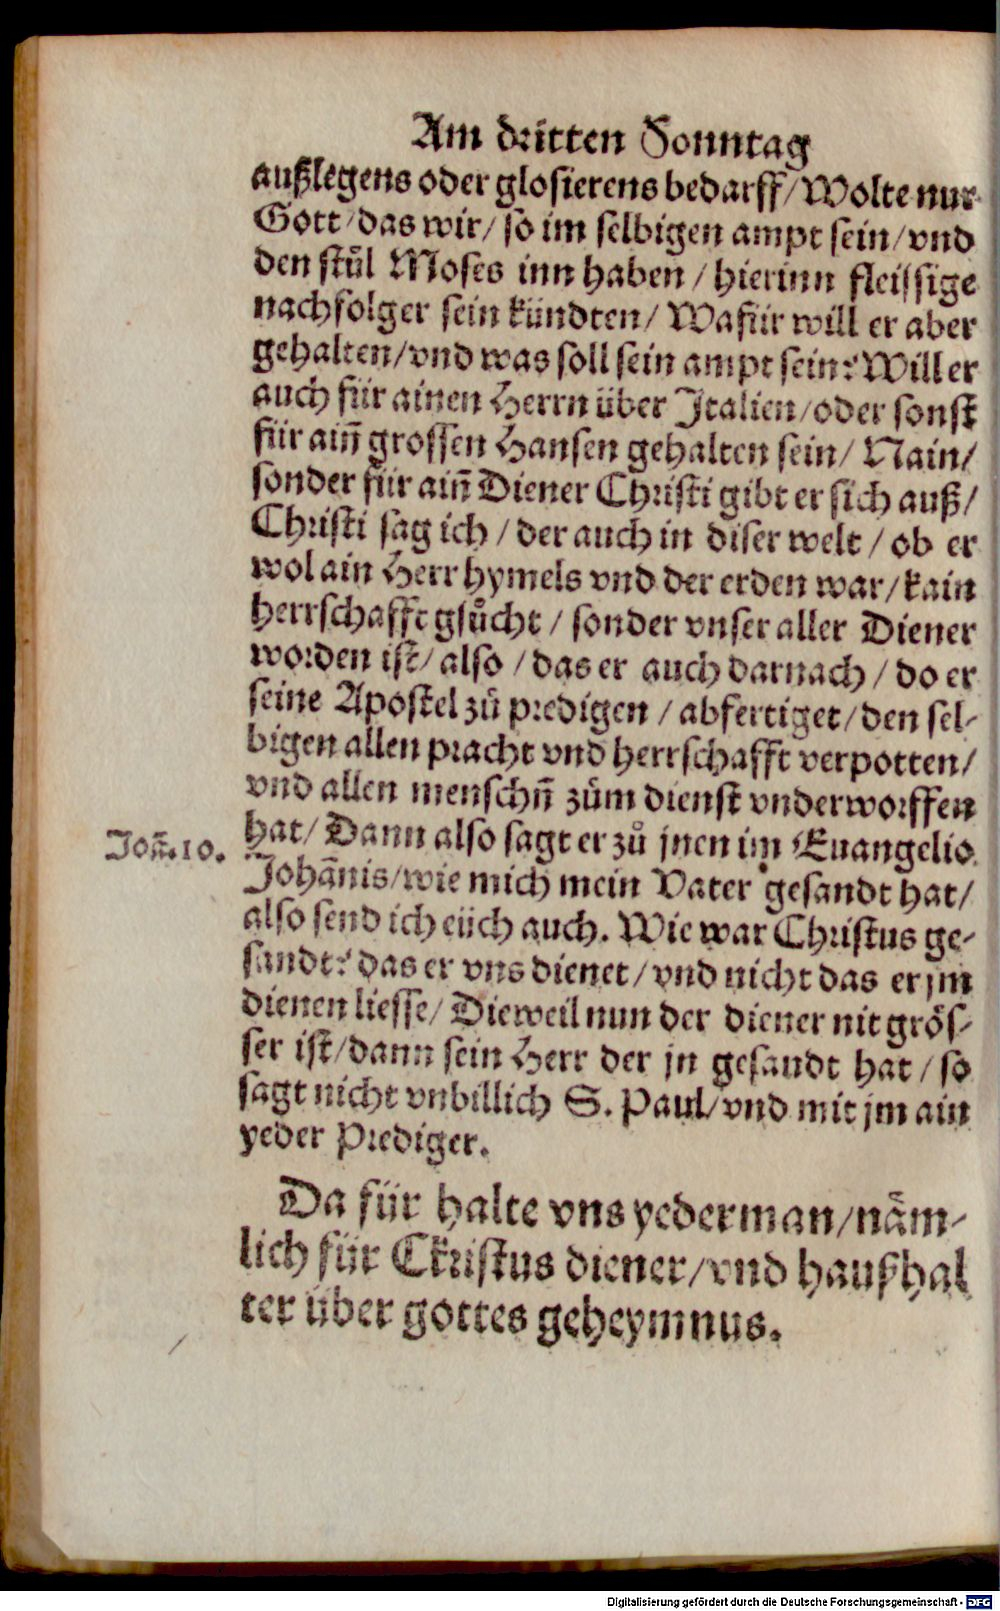 Am dritten Sonntag
außlegens oder glosierens bedarff/ Wolte nur
Gott/ das wir/ so im selbigen ampt sein/ vnd
den stůl Moses inn haben / hierinn fleissige
nachfolger sein kündten/ Wafür will er aber
gehalten/ vnd was soll sein ampt sein? Will er
auch für ainen Herrn über Italien/ oder sonst
für ain̄ grossen Hansen gehalten sein/ Nain/
sonder für ain̄ Diener Christi gibt er sich auß/
Christi sag ich / der auch in diser welt / ob er
wol ain Herr hymels vnd der erden war/ kain
herrschafft gsůcht / sonder vnser aller Diener
worden ist/ also / das er auch darnach / do er
seine Apostel zů predigen / abfertiget/ den sel-
bigen allen pracht vnd herrschafft verpotten/
vnd allen menschn̄ zům dienst vnderworffen
hat/ Dann also sagt er zů jnen im Euangelio
Joā. 10.
Johānis/ wie mich mein Vater gesandt hat/
also send ich eüch auch. Wie war Christus ge-
sandt? das er vns dienet/ vnd nicht das er jm
dienen liesse/ Dieweil nun der diener nit grös-
ser ist/ dann sein Herr der jn gesandt hat / so
sagt nicht vnbillich S. Paul/ vnd mit jm ain
yeder Prediger.
Da für halte vns yederman/ näm-
lich für Ckristus diener/ vnd haußhal
ter über gottes geheymnus.
Digitalisierung gefördert durch die Deutsche Forschungsgemeinschaft - DFG